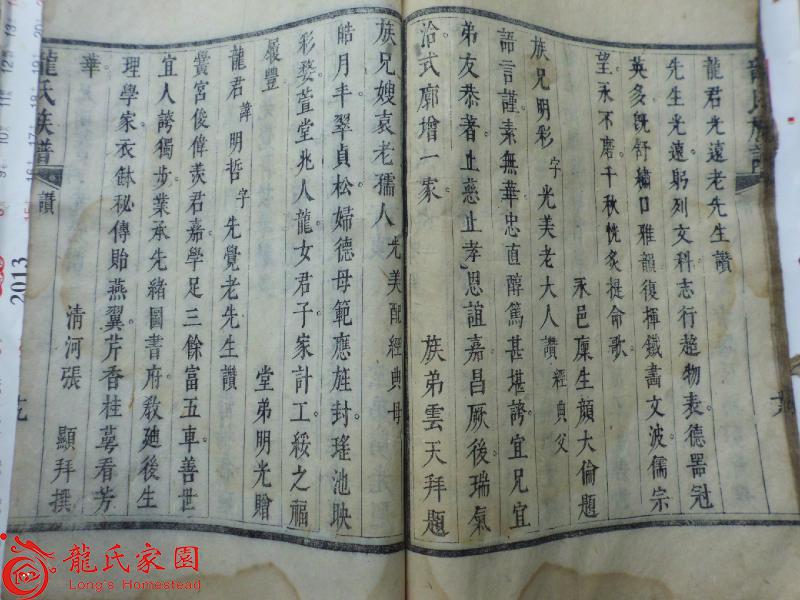 龍君光遠老先生讚
先生光遠躬列文科志行超物表德器冠
英多旣舒繡口雅韻復揮鐵畵文波儒宗
望永不磨千秋恍炙提命歌
永邑廩生顏大倫題
族兄明彩字光美老大人讚經典父
語言謹素無華忠直醇篤甚堪誇宜兄宜
弟友恭著止慈止孝恩誼嘉昌厥後瑞氣
洽式廓增一家
族弟雲天拜題
族兄嫂袁老孺人光美配經典母
皓月丰翠貞松婦德母範應旌封瑤池映
彩婺萱堂兆人龍女君子家計工綏之福
履豐
堂弟明光贈
龍君諱明哲字先覺老先生讚
黌宮俊偉羨君嘉學足三餘富五車善世
宜人誇獨步業承先緒圖書府教廸後生
理學家衣鉢秘傳貽燕翼芹香桂萼看芳
華
清河張 顯拜撰
龍氏族譜
讚
2013
龍氏家園
Long's Homestead